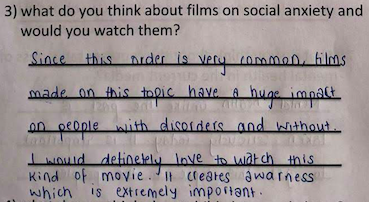 3) what do you think about films on social anxiety and
would you watch them?
Since this order is very common, films
made on this topic have a huge impact
on people with disorders and without.
I would definetely love to watch this
kind of movie. It creates awarness
which is extremely important.